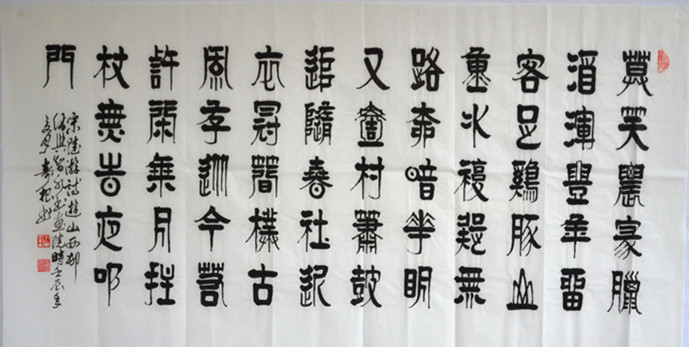 莫笑農家臘
酒渾豐年留
客足雞豚山
重水複疑無
路柳暗花明
又壹村簫鼓
追隨春社近
衣冠簡樸古
風存從今若
許閑乘月拄
杖無時夜叩
門
宋陸游詩遊山西村
書畫院時壬辰年